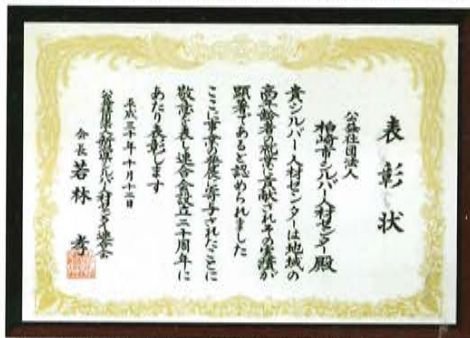 表彰状
公益社団法人
柏崎市シルバー人材センター殿
貴シルバー人材センターは地域の
高年齢者就業に貢献されその実績が
顕著であると認められました
ここに事業の発展に寄与されたことに
敬意を表し連合会設立三十周年に
あたり表彰します
平成三十年十月十二日
公益社団法人新潟県シルバー人材センター連合会
会長 若林 孝